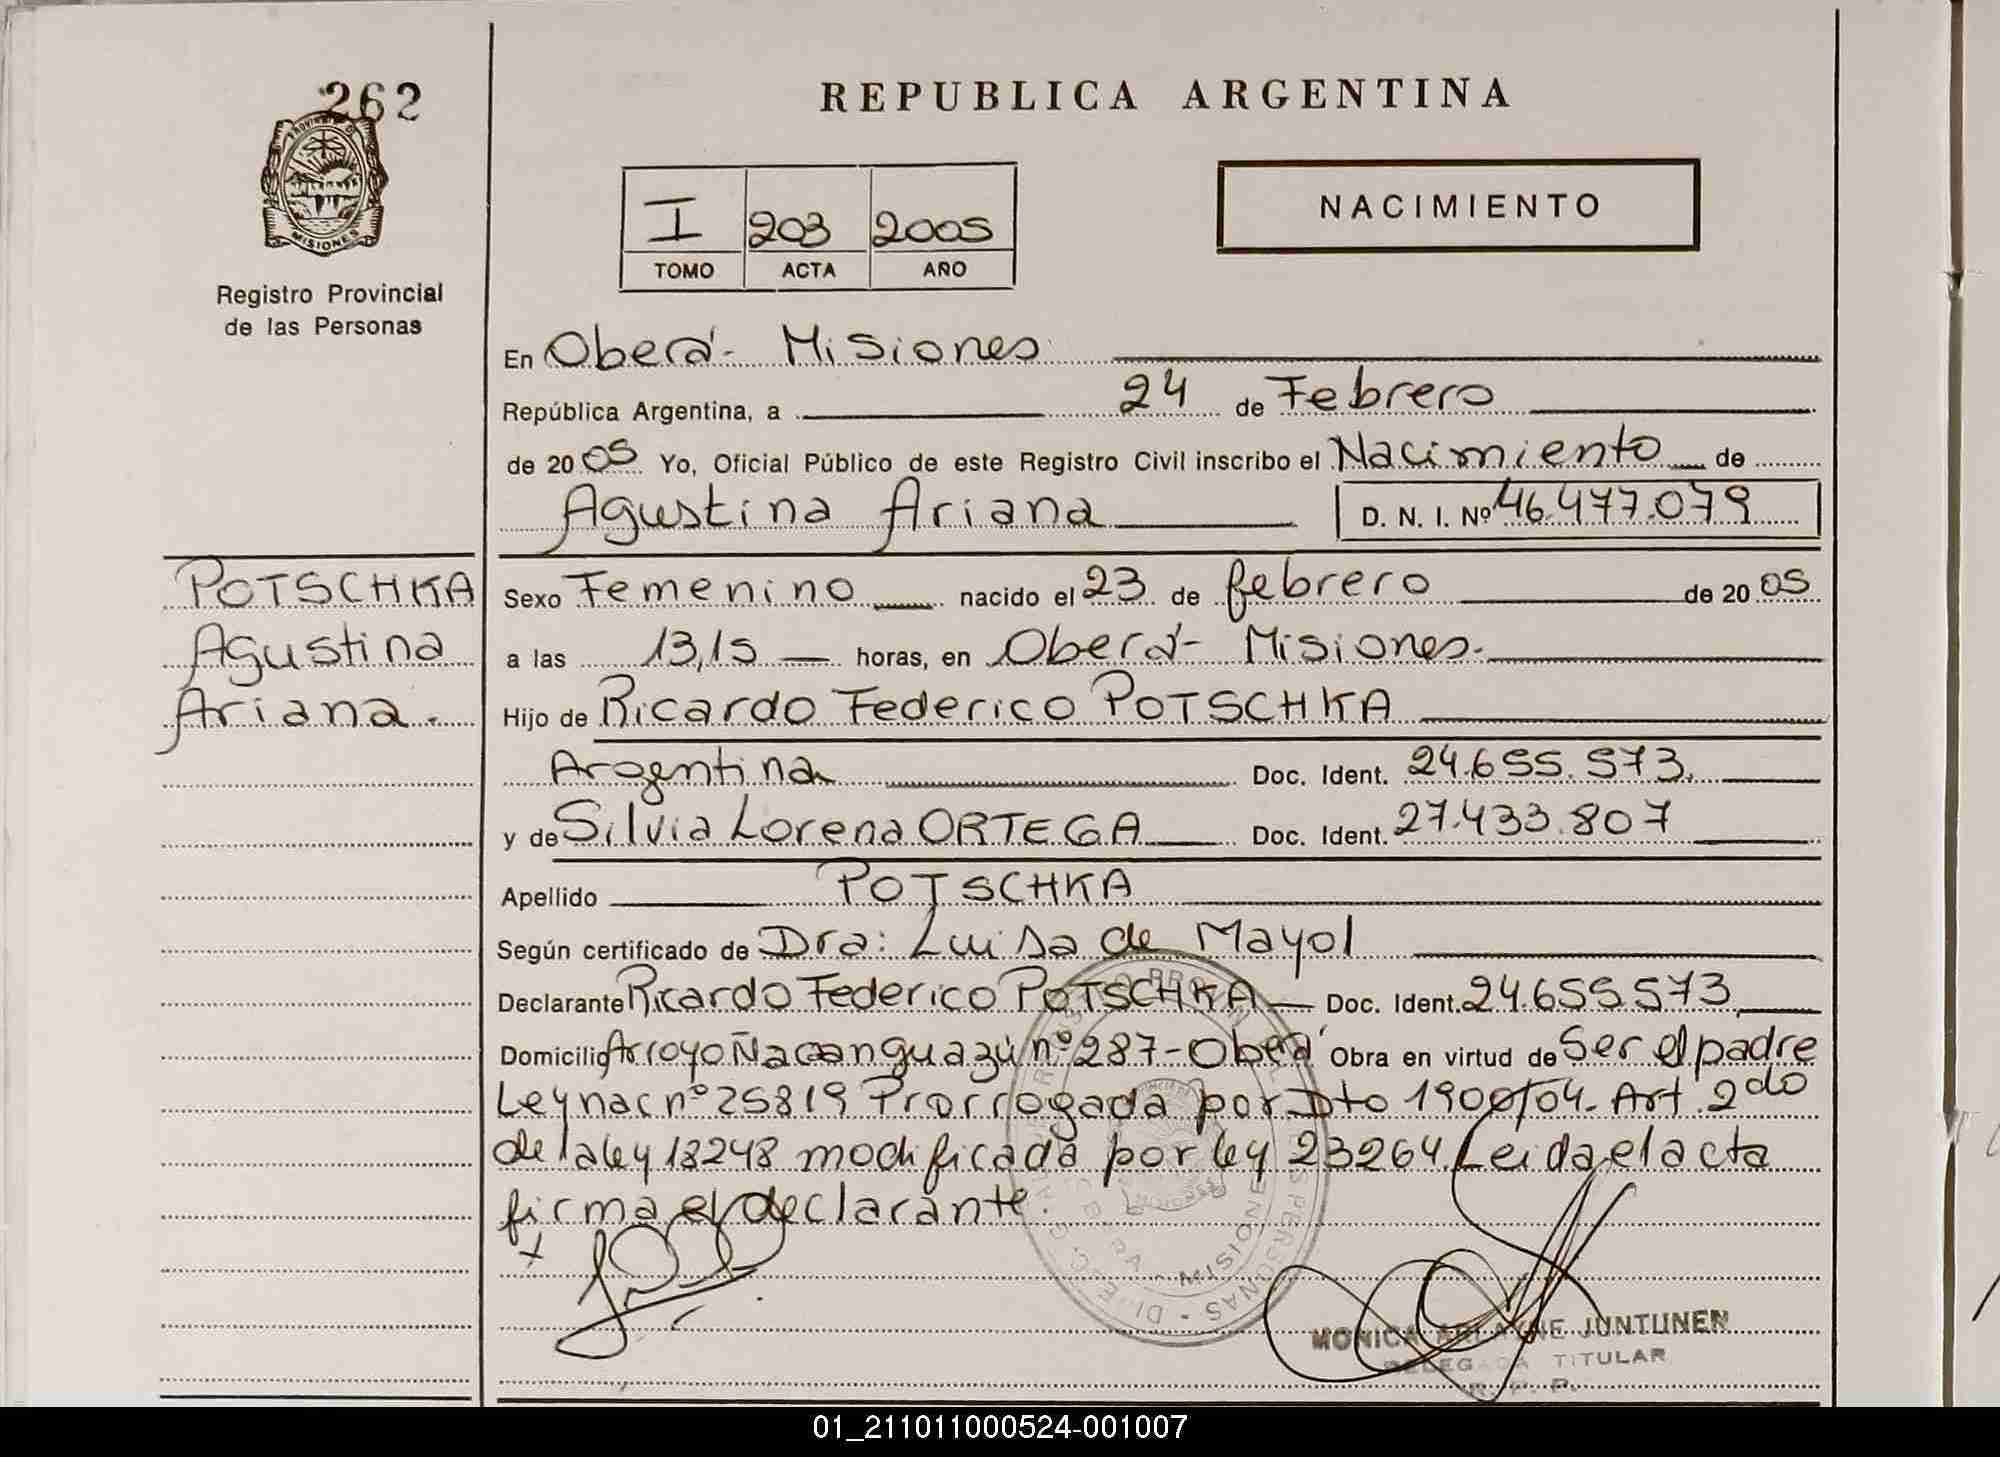 262
PROVINCIA DE
MISIONES
Registro Provincial
de las Personas
REPUBLICA ARGENTINA
I 203 2005
TOMO ACTA AÑO
NACIMIENTO
En Oberá - Misiones
República Argentina, a 24 de Febrero
de 2005 Yo, Oficial Público de este Registro Civil inscribo el Nacimiento de
Agustina Ariana D. N. I. Nº 46.477.079
POTSCHKA
Agustina
Ariana.
Sexo Femenino nacido el 23 de febrero de 2005
a las 13,15 horas, en Oberá - Misiones.
Hijo de Ricardo Federico POTSCHKA
Argentina Doc. Ident. 24.655.573.
y de Silvia Lorena ORTEGA Doc. Ident. 27.433.807
Apellido POTSCHKA
Según certificado de Dra: Luisa de Mayol
Declarante Ricardo Federico POTSCHKA Doc. Ident. 24.655.573
Domicilio Arroyo Ñacanguazú nº 287 - Oberá Obra en virtud de Ser el padre
Ley nac nº 25819 Prorrogada por Dto 1900/04. Art. 2do
de la ley 18248 modificada por ley 23264. Leida el acta
firma el declarante.
x
MISIONES
MONICA ARLAYNE JUNTUNEN
DELEGADA TITULAR
R. P. P.
01_211011000524-001007